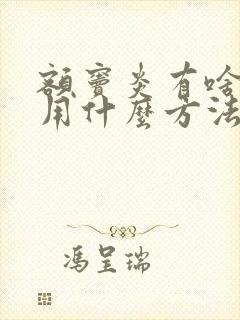 額竇炎有啥
用什麼方法
馮呈瑞